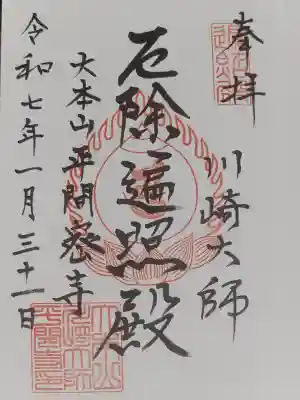 奉拝
川崎大師
厄除遍照殿
大本山平間密寺
令和七年一月三十一日